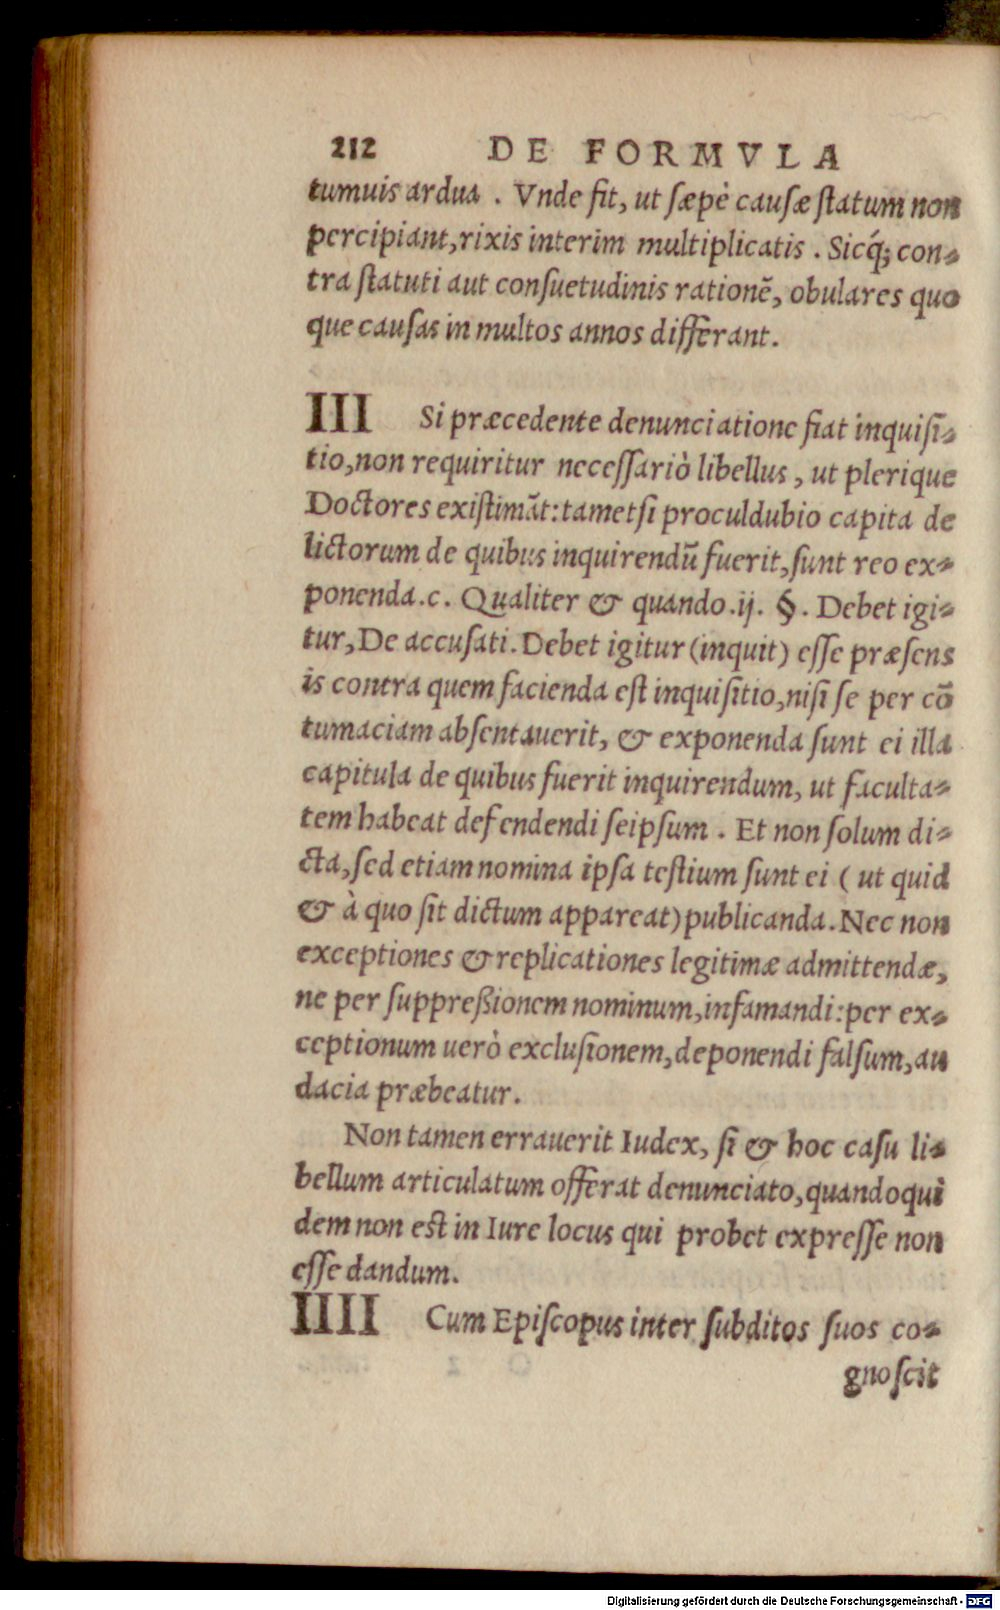 212 DE FORMVLA
tumuis ardua. Vnde fit, ut sæpè causæ ſtatum non
percipiant, rixis interim multiplicatis. Sicq́; con-
tra ſtatuti aut conſuetudinis rationẽ, obulares quo
que cauſas in multos annos differant.
III Si præcedente denunciatione fiat inquiſi-
tio, non requiritur neceſſariò libellus, ut plerique
Doctores exiſtimãt: tametſi proculdubio capita de
lictorum de quibus inquirendũ fuerit, ſunt reo ex-
ponenda. c. Qualiter & quando. ij. §. Debet igi-
tur, De accuſati. Debet igitur (inquit) eſſe præſens
is contra quem facienda eſt inquiſitio, niſi ſe per cõ
tumaciam abſentauerit, & exponenda ſunt ei illa
capitula de quibus fuerit inquirendum, ut faculta-
tem habeat defendendi ſeipſum. Et non ſolum di-
cta, ſed etiam nomina ipſa teſtium ſunt ei (ut quid
& à quo ſit dictum appareat) publicanda. Nec non
exceptiones & replicationes legitimæ admittendæ,
ne per ſuppreßionem nominum, infamandi: per ex-
ceptionum uerò excluſionem, deponendi falſum, au
dacia præbeatur.
Non tamen errauerit Iudex, ſi & hoc caſu li-
bellum articulatum offerat denunciato, quandoqui
dem non eſt in Iure locus qui probet expreſſe non
eſſe dandum.
IIII Cum Epiſcopus inter ſubditos ſuos co-
gnoſcit
Digitalisierung gefördert durch die Deutsche Forschungsgemeinschaft - DFG